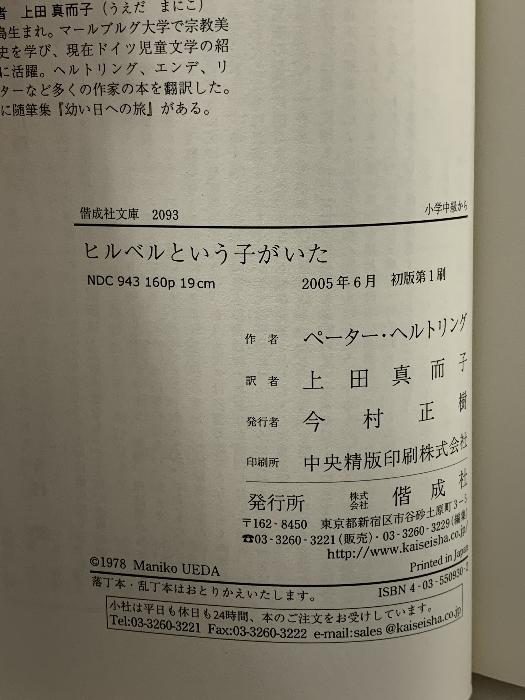 者　上田 真而子（うえだ　まにこ）
島生まれ。マールブルグ大学で宗教美
史を学び、現在ドイツ児童文学の紹
に活躍。ヘルトリング、エンデ、リ
ターなど多くの作家の本を翻訳した。
に随筆集『幼い日への旅』がある。
偕成社文庫　2093　小学中級から
ヒルベルという子がいた
NDC 943 160p 19cm　2005年6月　初版第1刷
作者　ペーター・ヘルトリング
訳者　上田真而子
発行者　今村正樹
印刷所　中央精版印刷株式会社
発行所　株式会社　偕成社
〒162-8450　東京都新宿区市谷砂土原町3-5
☎03-3260-3221（販売）・03-3260-3229（編集）
http://www.kaiseisha.co.jp/
©1978 Maniko UEDA　Printed in Japan
落丁本・乱丁本はおとりかえいたします。　ISBN 4-03-550930-2
小社は平日も休日も24時間、本のご注文をお受けしています。
Tel:03-3260-3221 Fax:03-3260-3222 e-mail:sales @kaiseisha.co.jp